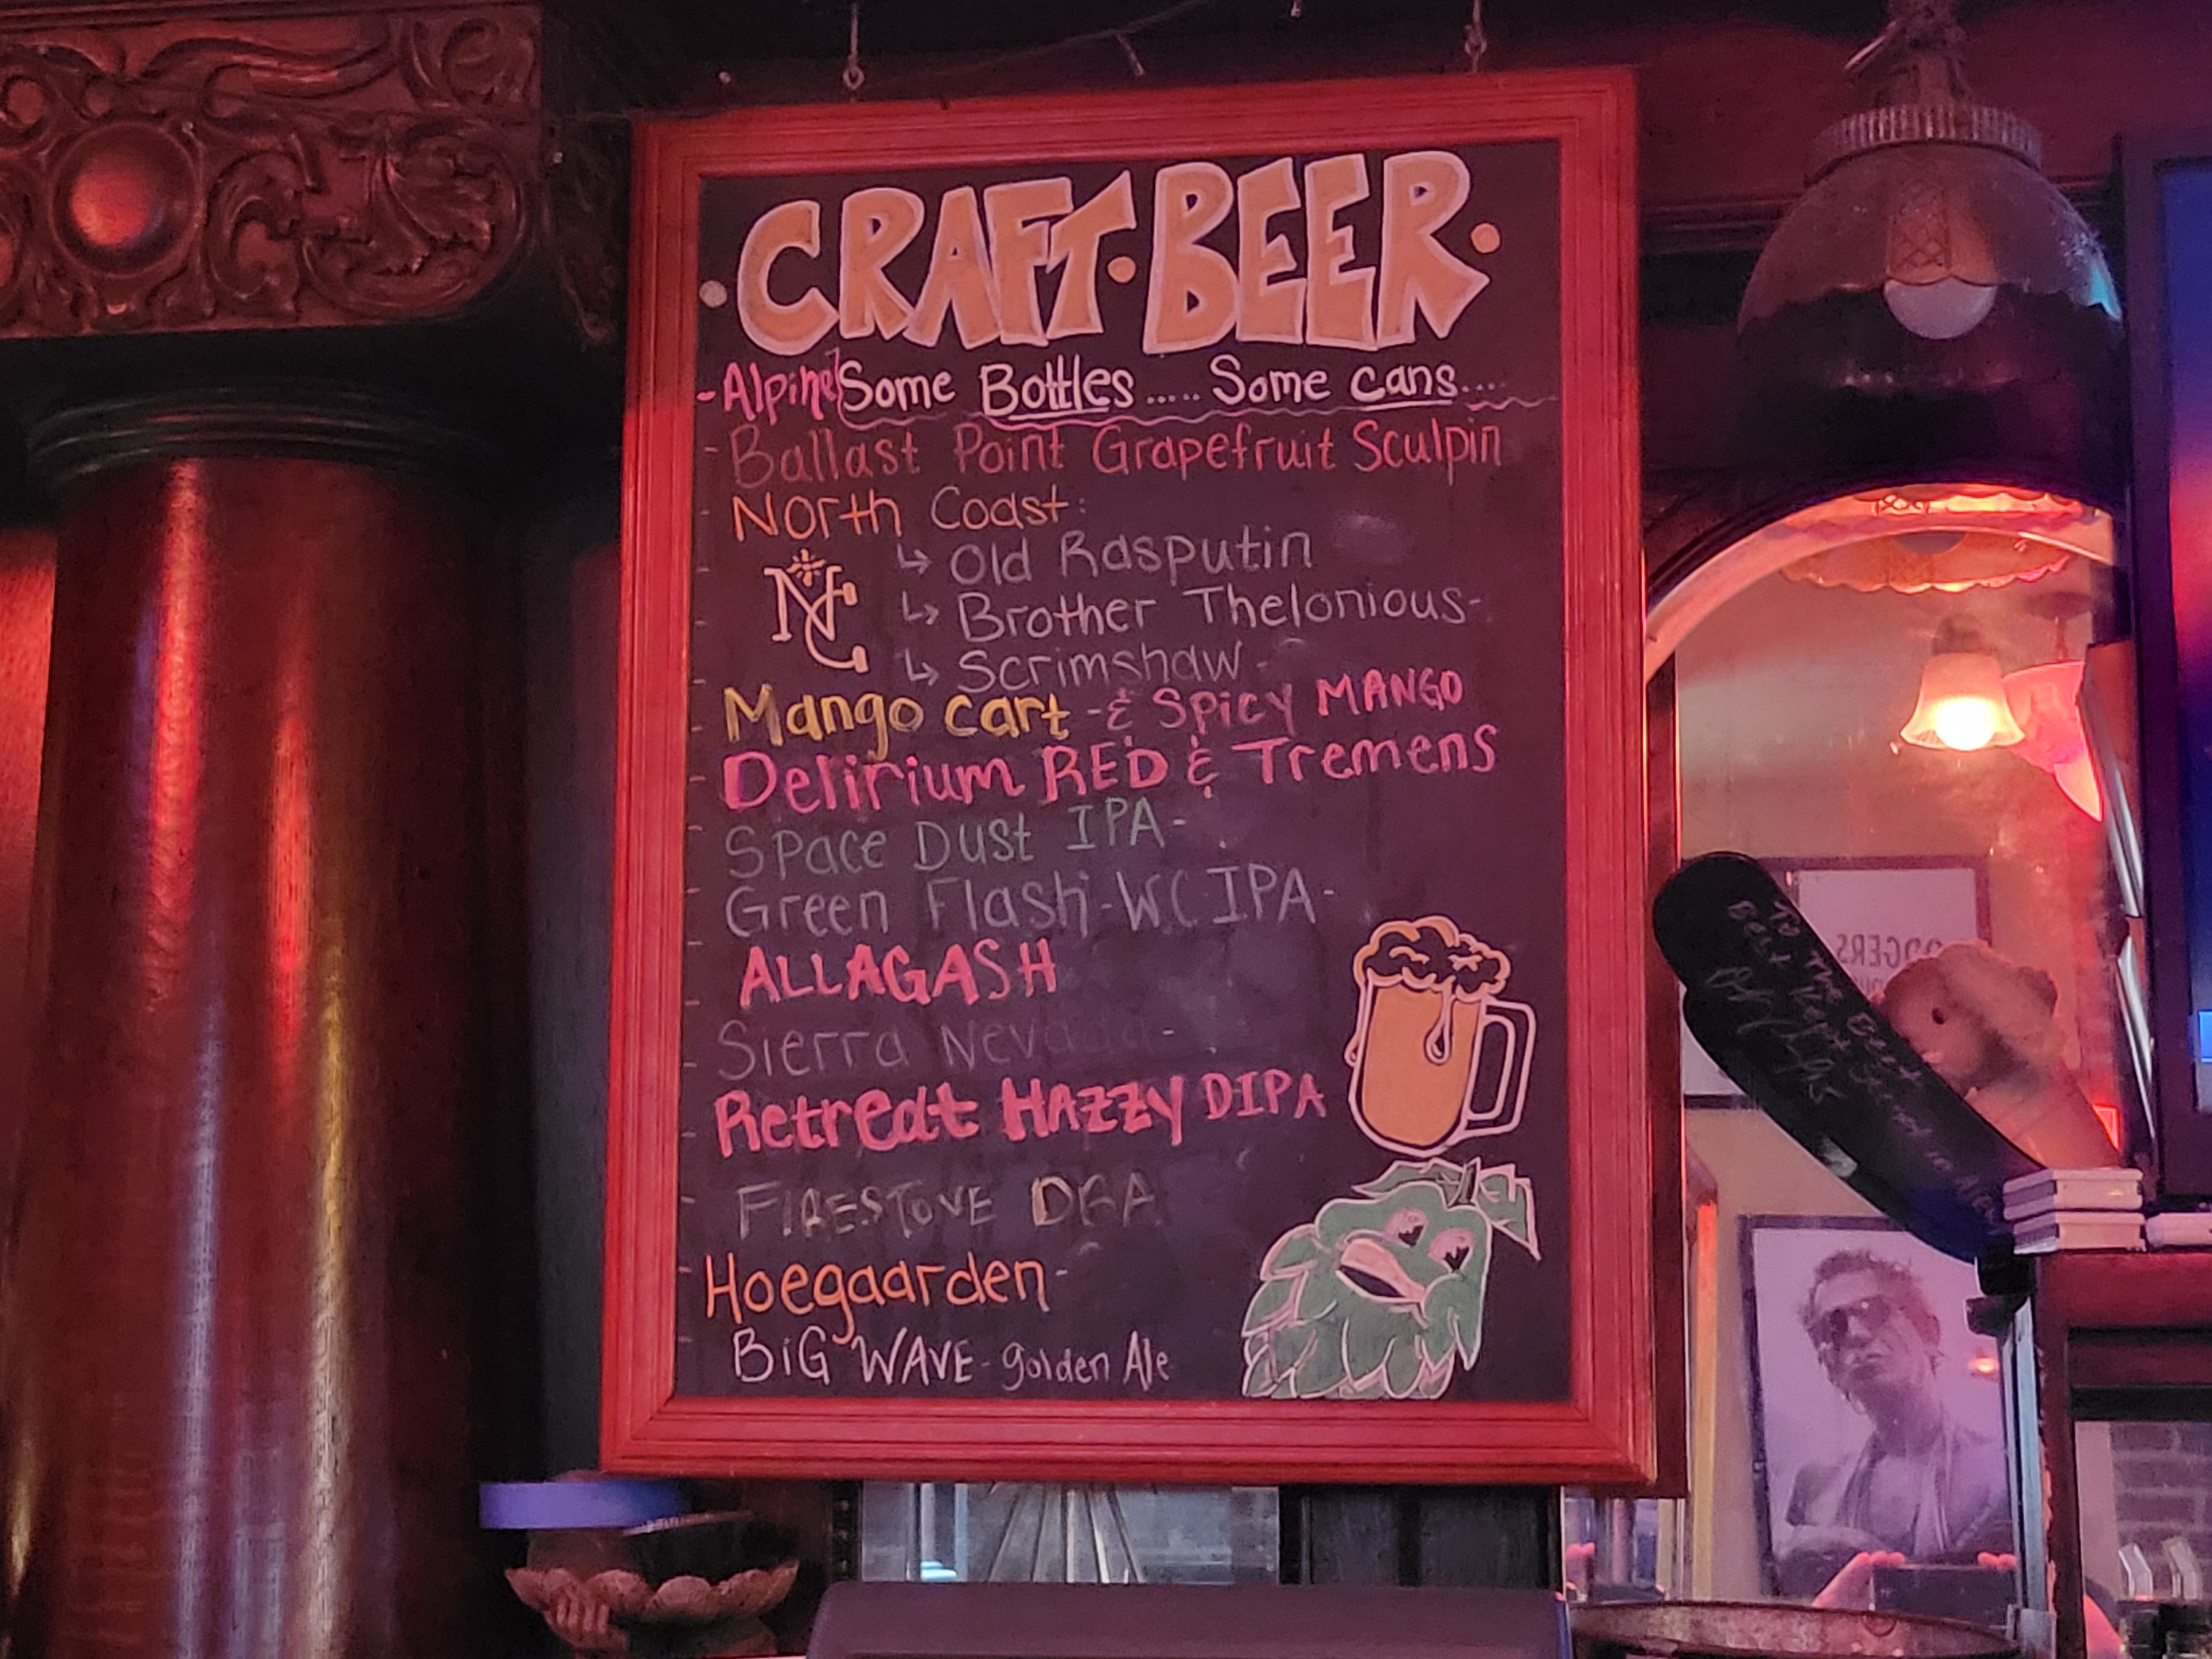 CRAFT · BEER ·
- Alpine Some Bottles ..... Some cans....
- Ballast Point Grapefruit Sculpin
- North Coast:
NC
↳ Old Rasputin
↳ Brother Thelonious-
↳ Scrimshaw -
- Mango cart - & Spicy MANGO
- Delirium RED & Tremens
- Space Dust IPA -
- Green Flash - WC IPA -
- ALLAGASH
- Sierra Nevada -
- Retreat HAZZY DIPA
- FIRESTONE DBA
- Hoegaarden -
- BiG WAVE - golden Ale